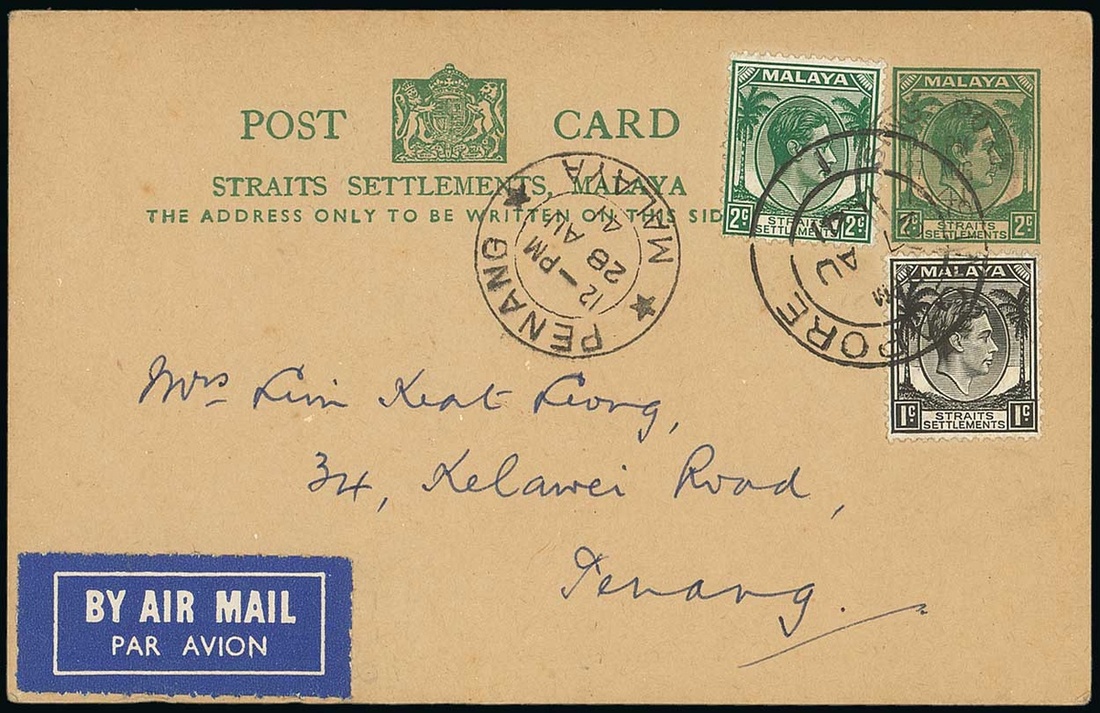 POST CARD
STRAITS SETTLEMENTS, MALAYA
THE ADDRESS ONLY TO BE WRITTEN ON THIS SID
MALAYA
2c STRAITS SETTLEMENTS 2c
MALAYA
2c STRAITS SETTLEMENTS 2c
MALAYA
1c STRAITS SETTLEMENTS 1c
PENANG ★ MALAYA ★
12 — PM
28 AU
PORE
AU
Mrs Lim Keat Leong,
34, Kelawei Road,
Penang.
BY AIR MAIL
PAR AVION